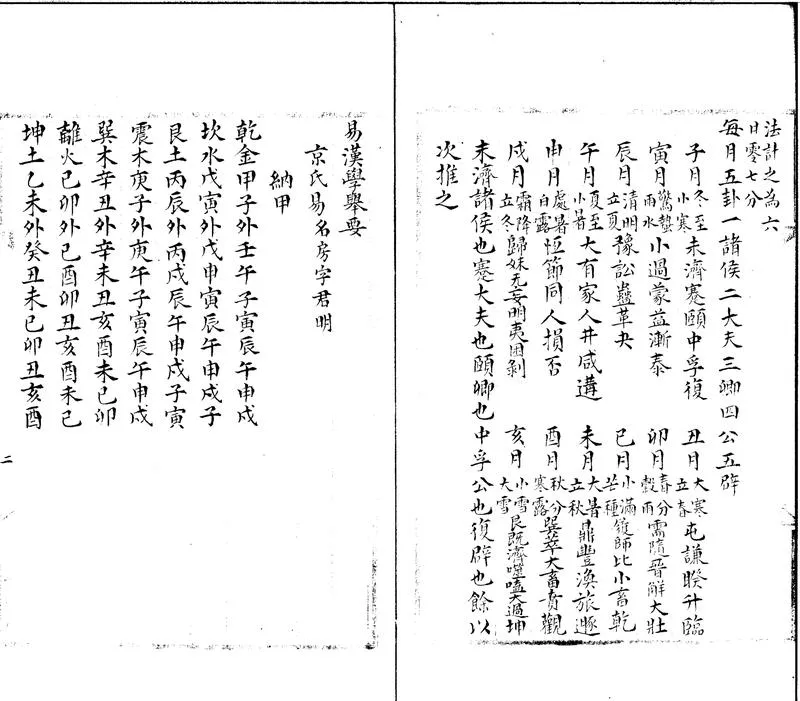 法計之為六
日零七分
每月五卦一諸侯二大夫三卿四公五辟
子月冬至小寒未濟蹇頤中孚復 丑月大寒立春屯謙睽升臨
寅月驚蟄雨水小過蒙益漸泰 卯月春分穀雨需隨晉解大壯
辰月清明立夏豫訟蠱革夬 巳月小滿芒種旅師比小畜乾
午月夏至小暑大有家人井咸遘 未月大暑立秋鼎豐渙旅遯
申月處暑白露恆節同人損否 酉月秋分寒露巽萃大畜賁觀
戌月霜降立冬歸妹无妄明夷困剝 亥月小雪大雪艮既濟噬嗑大過坤
未濟諸侯也蹇大夫也頤卿也中孚公也復辟也餘以
次推之
易漢學舉要
京氏易名房字君明
納甲
乾金甲子外壬午子寅辰午申戌
坎水戊寅外戊申寅辰午申戌子
艮土丙辰外丙戌辰午申戌子寅
震木庚子外庚午子寅辰午申戌
巽木辛丑外辛未丑亥酉未巳卯
離火己卯外己酉卯丑亥酉未巳
坤土乙未外癸丑未巳卯丑亥酉
二